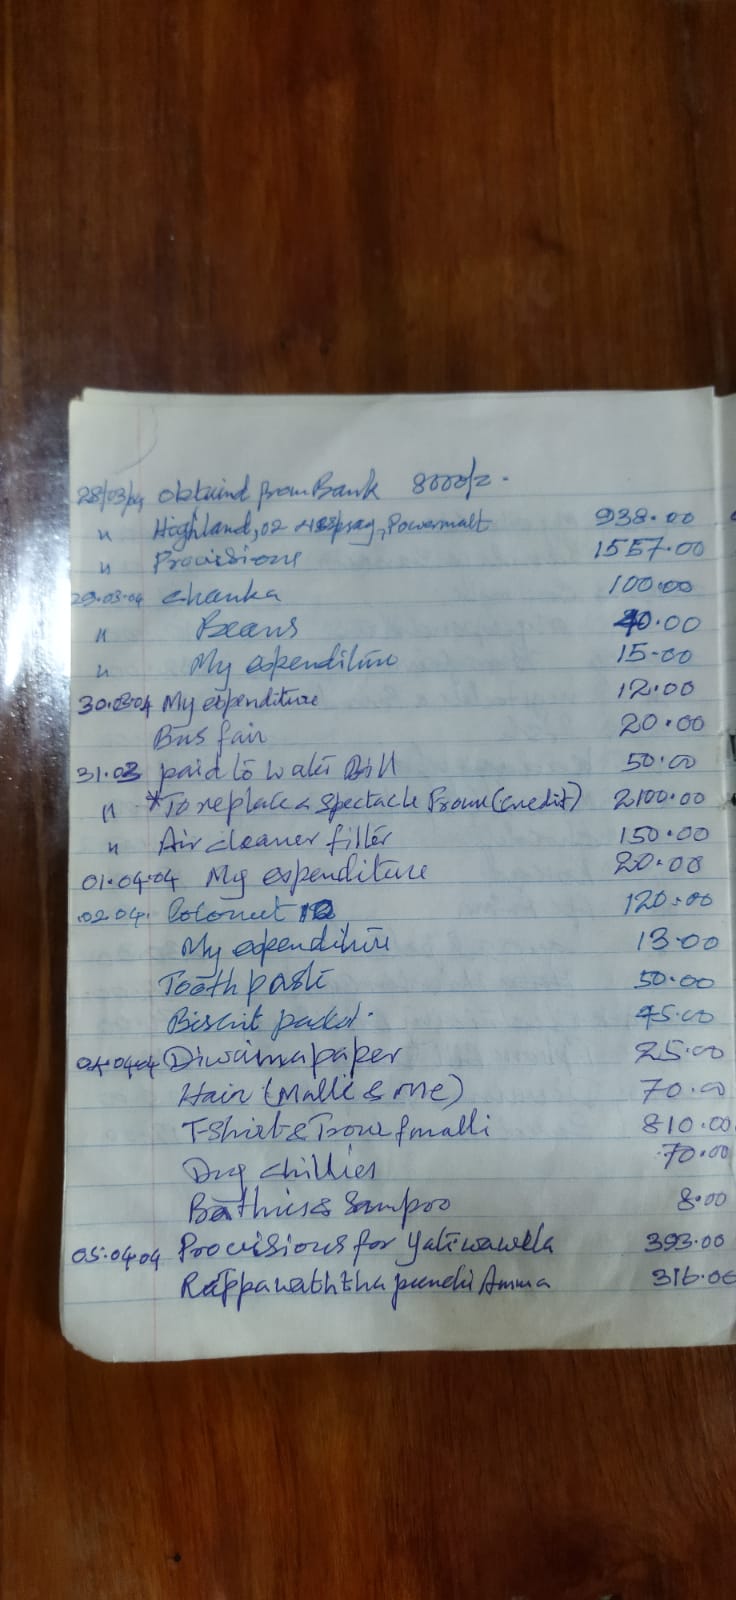 28/03/04 obtaind from Bank 8000/=.
" Highland, 02 , Powermalt 938.00
" Provisions 1557.00
29.03.04 Chanka 100.00
" Beans 40.00
" My expenditure 15-00
30.03.04 My expenditure 12.00
Bus fair 20.00
31.03 paid to water Bill 50.00
" *To replace a spectacle Frame (credit) 2100.00
" Air cleaner filter 150.00
01.04.04 My expenditure 20.00
.02.04. Coconut 12 120.00
My expenditure 13.00
Tooth paste 50.00
Biscuit packet. 45.00
04.04.04 Diwaina paper 25.00
Hair (Malli & Me) 70.00
T-Shirt & Trous f malli 810.00
Dry chillies 70.00
& Sampoo 8.00
05.04.04 Provisions for Yatiwawala 393.00
Rappawaththa punchi Amma 316.00